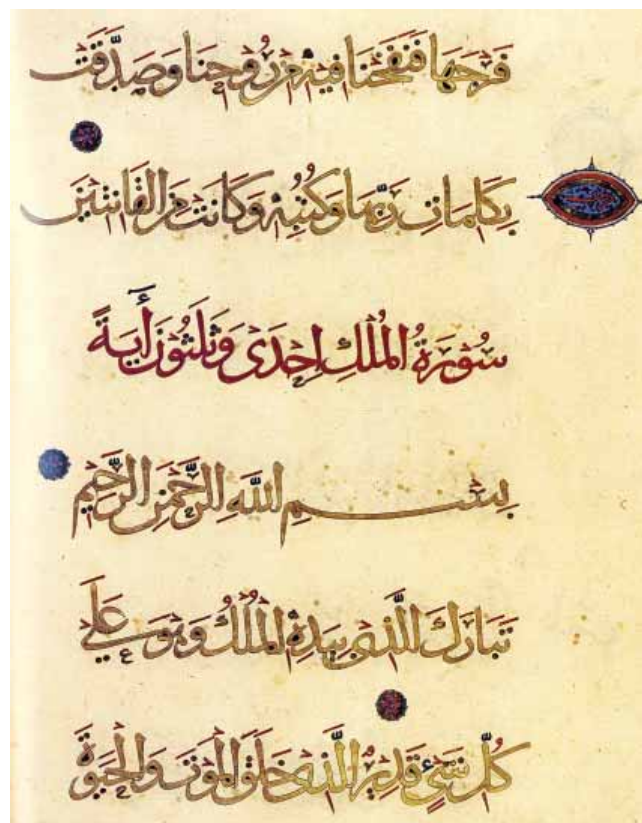 فَرْجَهَا فَنَفَخْنَا فِيهِ مِنْ رُوحِنَا وَصَدَّقَتْ
بِكَلِمَاتِ رَبِّهَا وَكُتُبِهِ وَكَانَتْ مِنَ الْقَانِتِينَ
سُورَةُ الْمُلْكِ اِحْدَى وَثَلٰثُونَ أٰيَةً
بِسْمِ اللَّهِ الرَّحْمٰنِ الرَّحِيمِ
تَبَارَكَ الَّذِي بِيَدِهِ الْمُلْكُ وَهُوَ عَلَى
كُلِّ شَيْءٍ قَدِيرٌ الَّذِي خَلَقَ الْمَوْتَ وَالْحَيٰوةَ